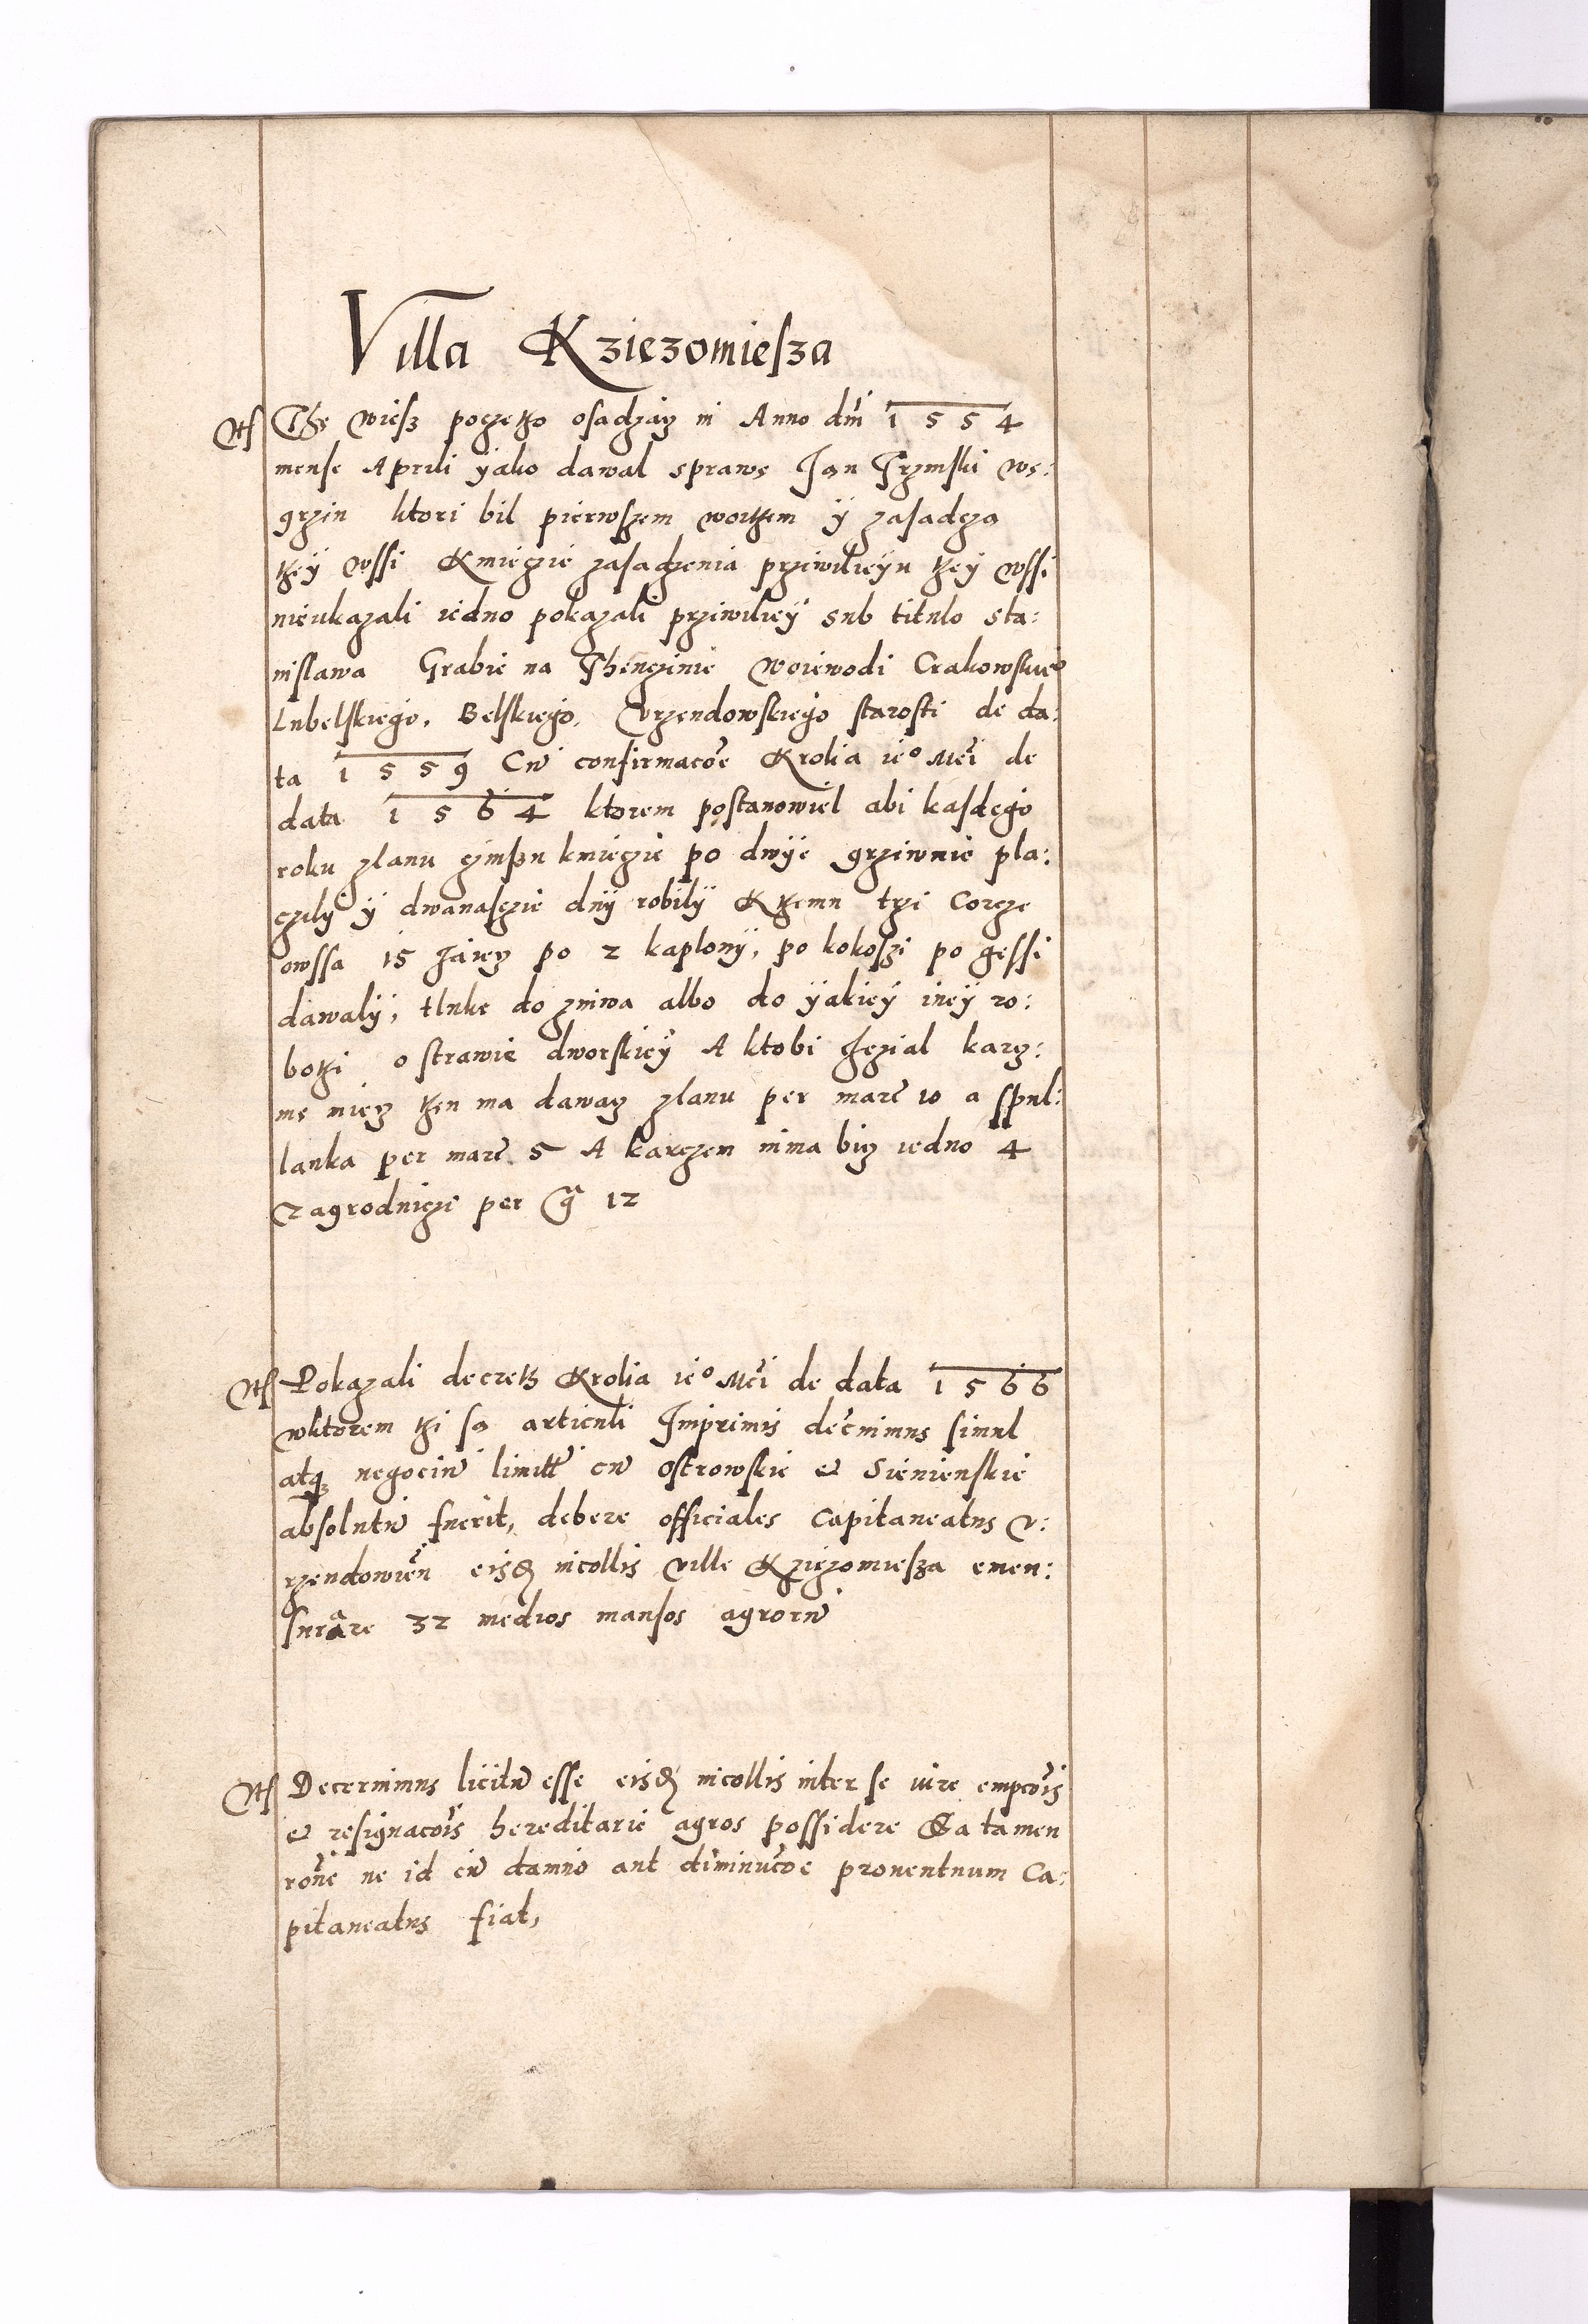 Villa Kziezomiesza
Thę wiesz poczętho osadzacz in Anno dnī 1554
mense Aprili yako dawal sprawę Jan Trzmski wę:
grzin ktori bil pierwszem woithem ÿ zasadczą
theÿ wssi Kmieczie zasadzenia prziwileÿu theÿ wssi
nieukazali iedno pokazali prziwileÿ sub titulo sta:
nislawa Grabie na Thenczinie woiewodi Crakowskiego
Lubelskiego, Belskiego, Vrzendowskiego starosti de da:
ta 1559 Cū confirmacōe Krolia ieo Mči de
data 1564 ktorem postanowiel abi kasdego
roku zlanu czinszu kmieczie po dwÿe grziwnie pla:
czilÿ ÿ dwanasczie dnÿ robilÿ Kthemu trzi Corcze
owssa 15 Jaiecz po 2 kaplonÿ, po kokoszi po gessi
dawalÿ, tluke do zniwa albo do ÿakieÿ ineÿ ro:
bothi o strawie dworskieÿ A ktobi chczial karcz:
mę miecz then ma dawacz zlanu per marc 10 a spul:
lanka per marc 5 A karczem nima bicz iedno 4
Zagrodniczi per gͣ 12
Nts Pokazali decreth Krolia ieo Mči de data 1566
wktorem thi są articuli Imprimis decrnimus simul
atq negociū limitū cū ostrowskie et Sienienskie
absolutū fuerit, debere officiales Capitaneatus V:
rzendowien eisd incollis ville Kziezomiesza emen:
surare 32 medios mansos agrorū
Nts Decernimus licitū esse eisd incollis inter se iure empcoīs
et resignacoīs hereditarie agros possidere Ea tamen
roñe ne id cū damno aut diminucōe prouentuum Ca:
pitaneatus fiat,